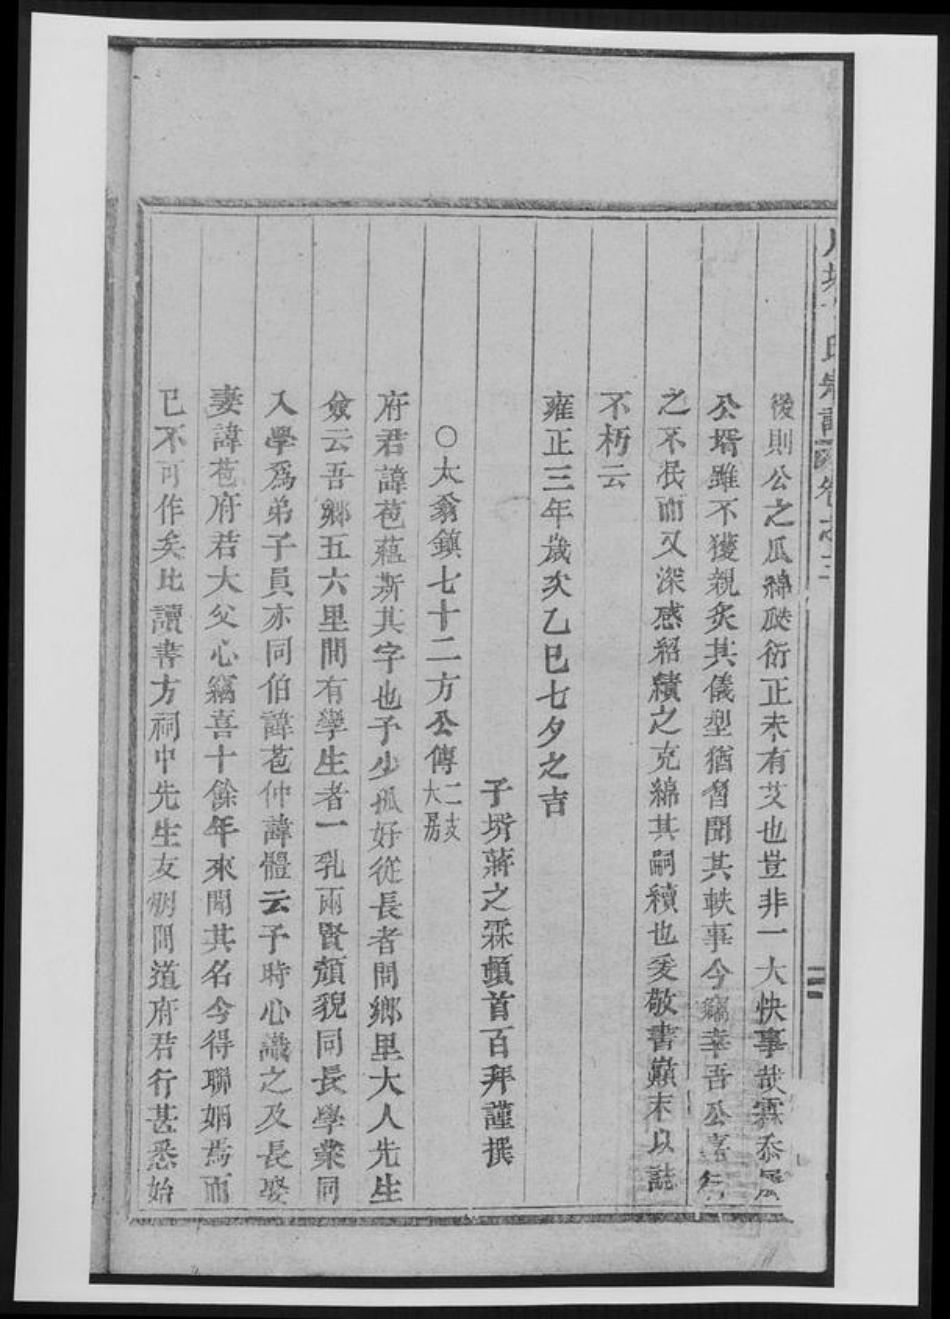 氏宗譜 卷之二
後則公之瓜綿瓞衍正未有艾也豈非一大快事哉霖忝居
公壻雖不獲親炙其儀型猶習聞其軼事今竊幸吾公嘉
之不泯而又深感紹續之克綿其嗣續也爰敬書巔末以誌
不朽云
雍正三年歲次乙巳七夕之吉
子壻蔣之霖頓首百拜謹撰
○太翁鎮七十二方公傳二支大房
府君諱苞蘊斯其字也予少孤好從長者問鄉里大人先生
僉云吾鄉五六里間有孿生者一乳兩賢顏貌同長學業同
入學爲弟子員亦同伯諱苞仲諱體云予時心識之及長娶
妻諱苞府君大父心竊喜十餘年來聞其名今得聯姻焉而
已不可作矣比讀書方祠中先生友炯間道府君行甚悉始